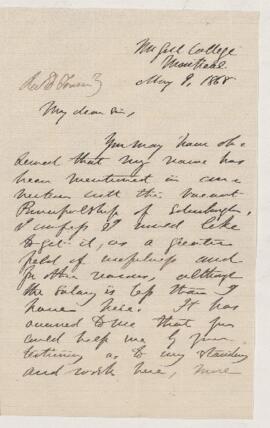 McGill College
Montreal
May 9, 1868
Rev D
My dear Sir,
You may have ob-
served that my name has
been mentioned in con-
nection with the vacant
Principalship of Edinburgh.
I confess I would like
to get it, as a greater
field of usefulness and
for other reasons, although
the salary is less than I
have here. It has
occurred to me that you
could help me by your
testimony as to my standing
and work here, more